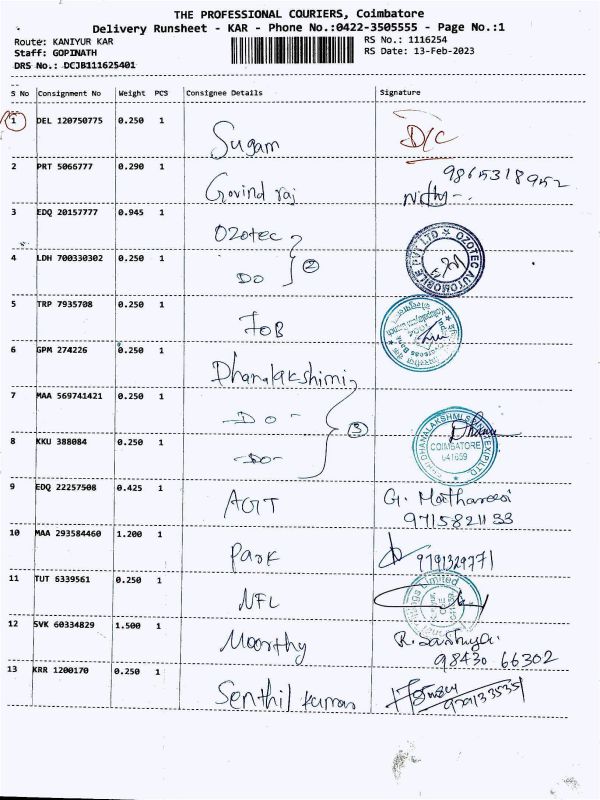 THE PROFESSIONAL COURIERS, Coimbatore
Delivery Runsheet - KAR - Phone No.:0422-3505555 - Page No.:1
Route: KANIYUR KAR
RS No.: 1116254
Staff: GOPINATH
RS Date: 13-Feb-2023
DRS No.: DCJB111625401
S No Consignment No Weight PCS Consignee Details Signature
1 DEL 120750775 0.250 1 Sugam D/C
2 PRT 5066777 0.290 1 Govind raj 9865318952
3 EDQ 20157777 0.945 1 Ozotec
OZOTEC AUTOMOBILE PVT LTD
4 LDH 700330302 0.250 1 DO 2
5 TRP 7935708 0.250 1 IOB
6 GPM 274226 0.250 1 Dhanalakshimi
7 MAA 569741421 0.250 1 - DO - 3
COIMBATORE
641659
8 KKU 388084 0.250 1 - DO -
9 EDQ 22257508 0.425 1 AGT G.
9715821133
10 MAA 293584460 1.200 1 Park 9791329771
11 TUT 6339561 0.250 1 NFL
12 SVK 60334829 1.500 1 Moorthy R. Sathya.
98430 66302
13 KRR 1200170 0.250 1 Senthil kumar